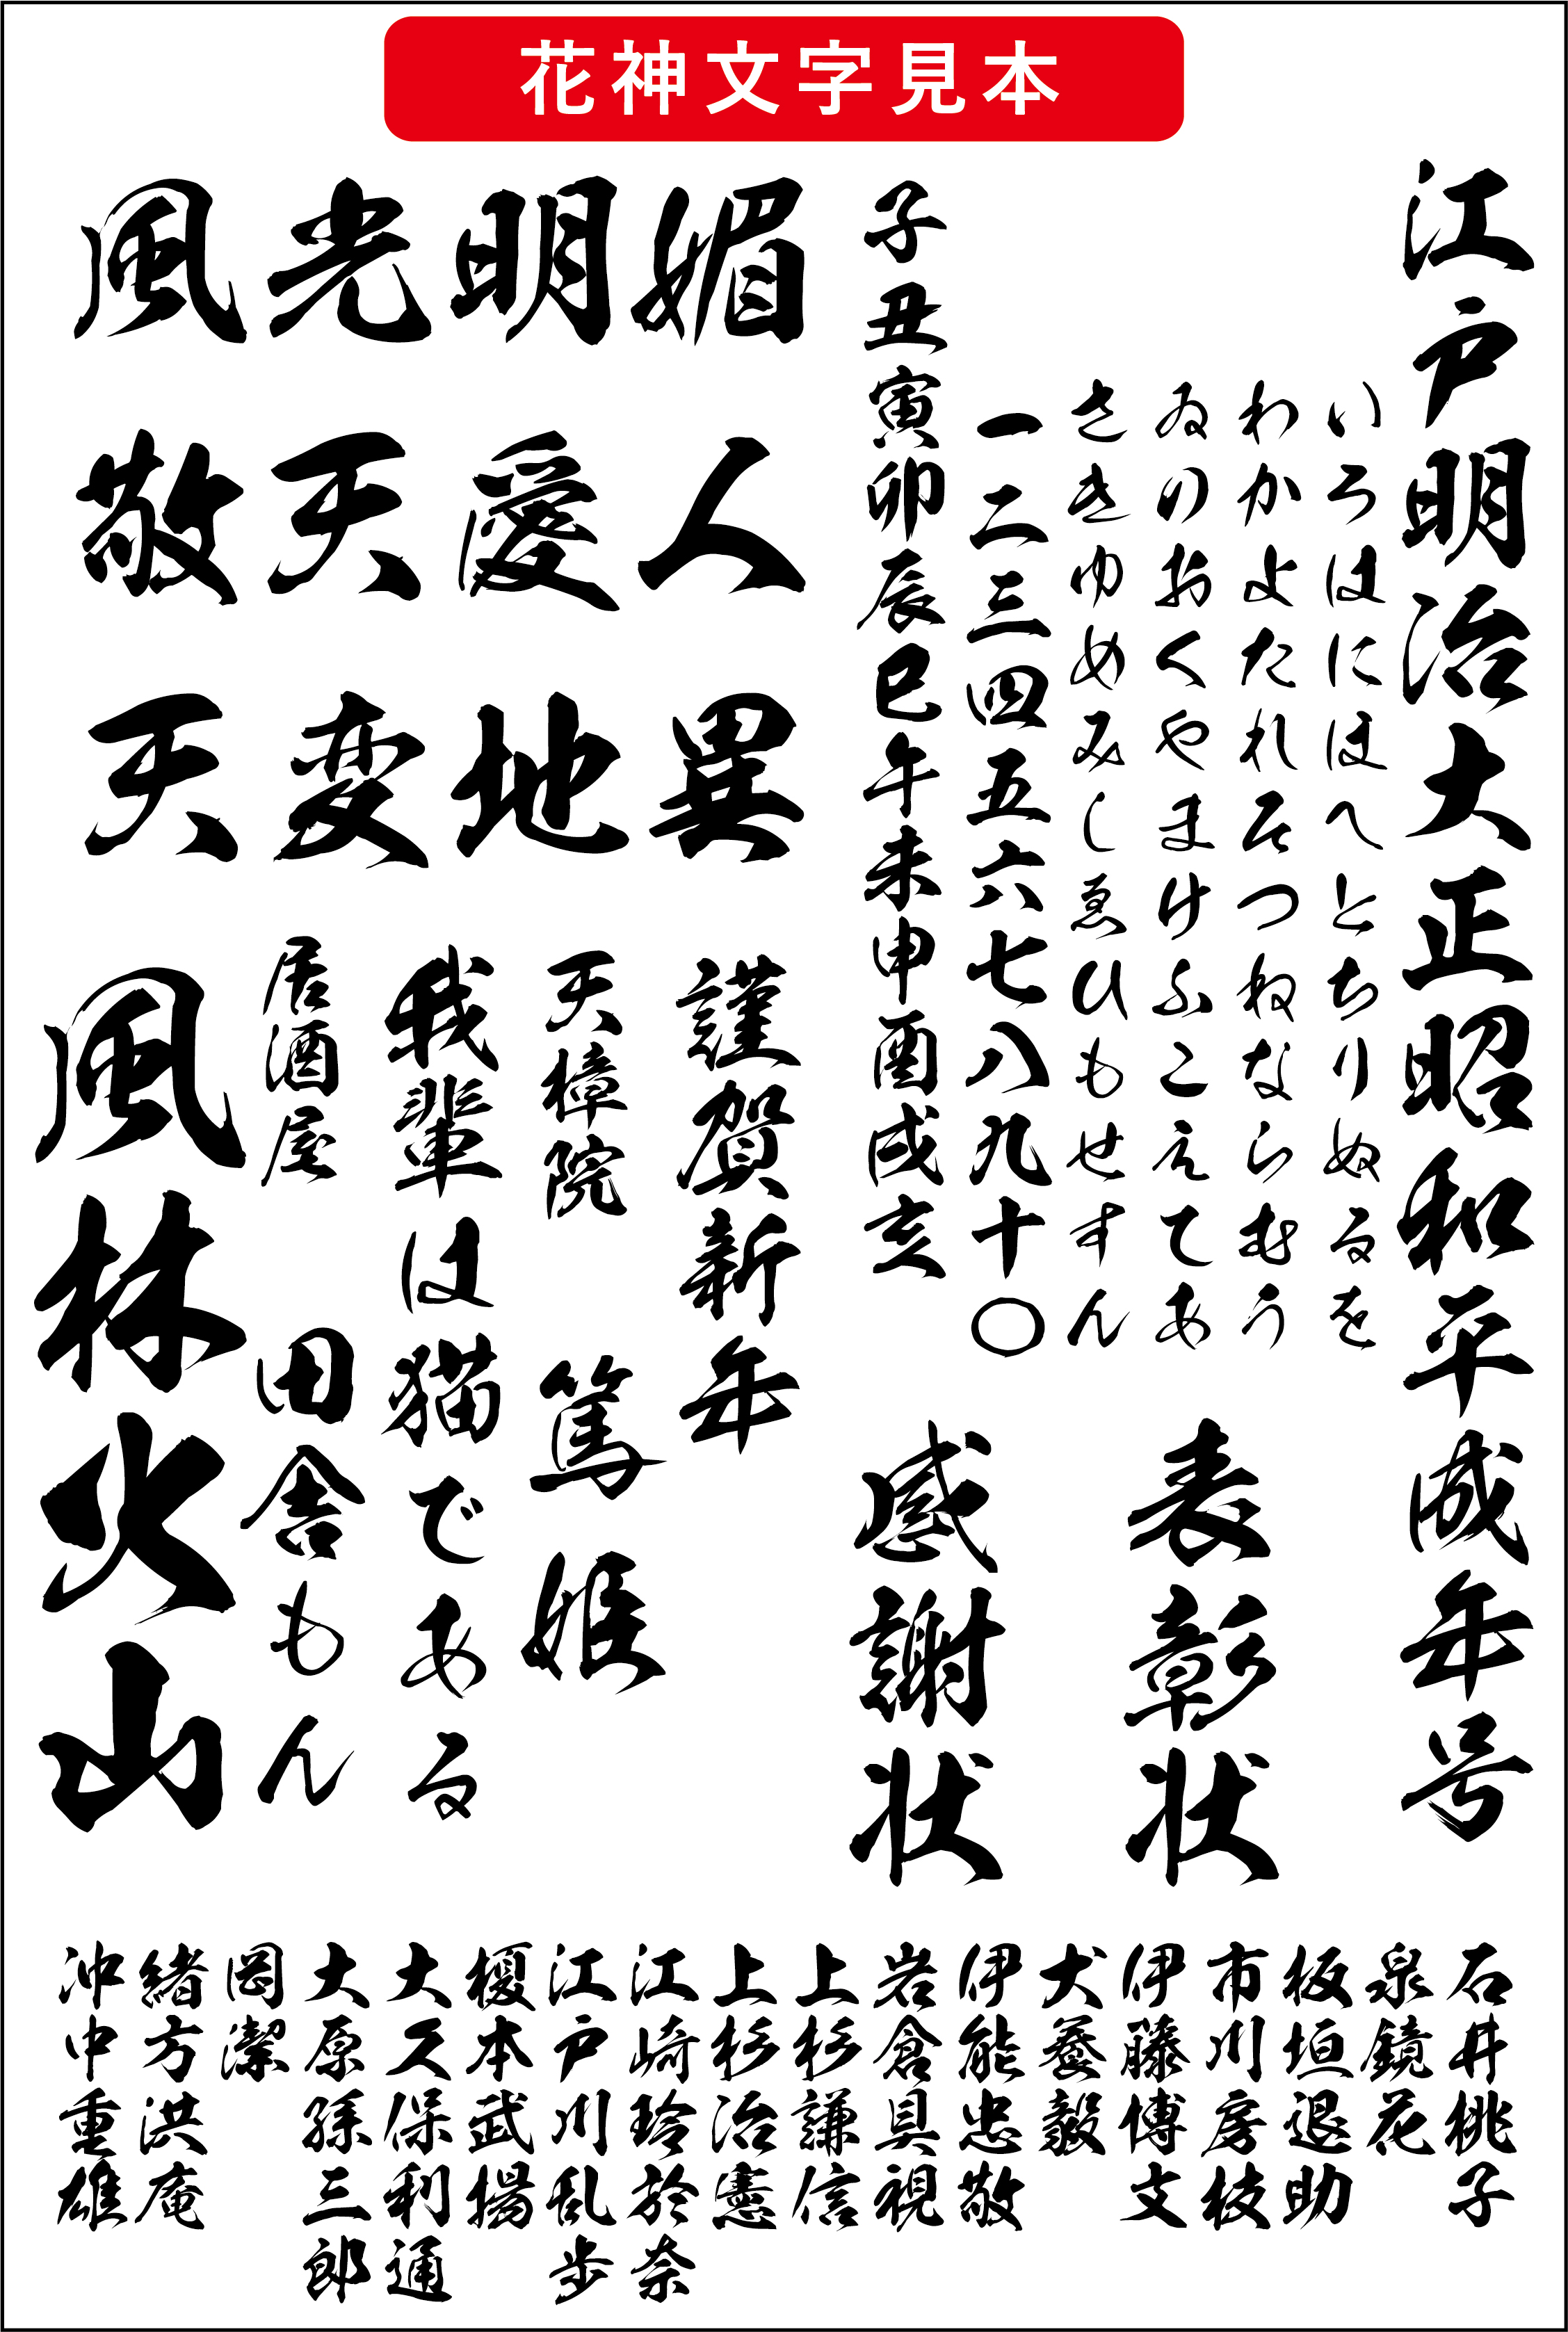 花神文字見本
江戸明治大正昭和平成年号
いろはにほへとちりぬるを
わかよたれそつねならむう
ゐのおくやまけふこえてあ
さきゆめみしゑひもせすん
一二三四五六七八九十〇
子丑寅卯辰巳午未申酉戌亥
表彰状
感謝状
風光明媚
敬天愛人
天変地異
謹賀新年
天樟院
篤姫
我輩は猫である
居酒屋
田舎もん
風林火山
石井桃子
泉鏡花
板垣退助
市川房枝
伊藤博文
犬養毅
伊能忠敬
岩倉具視
上杉謙信
上杉治憲
江崎玲於奈
江戸川乱歩
榎本武揚
大久保利通
大原孫三郎
岡潔
緒方洪庵
沖中重雄